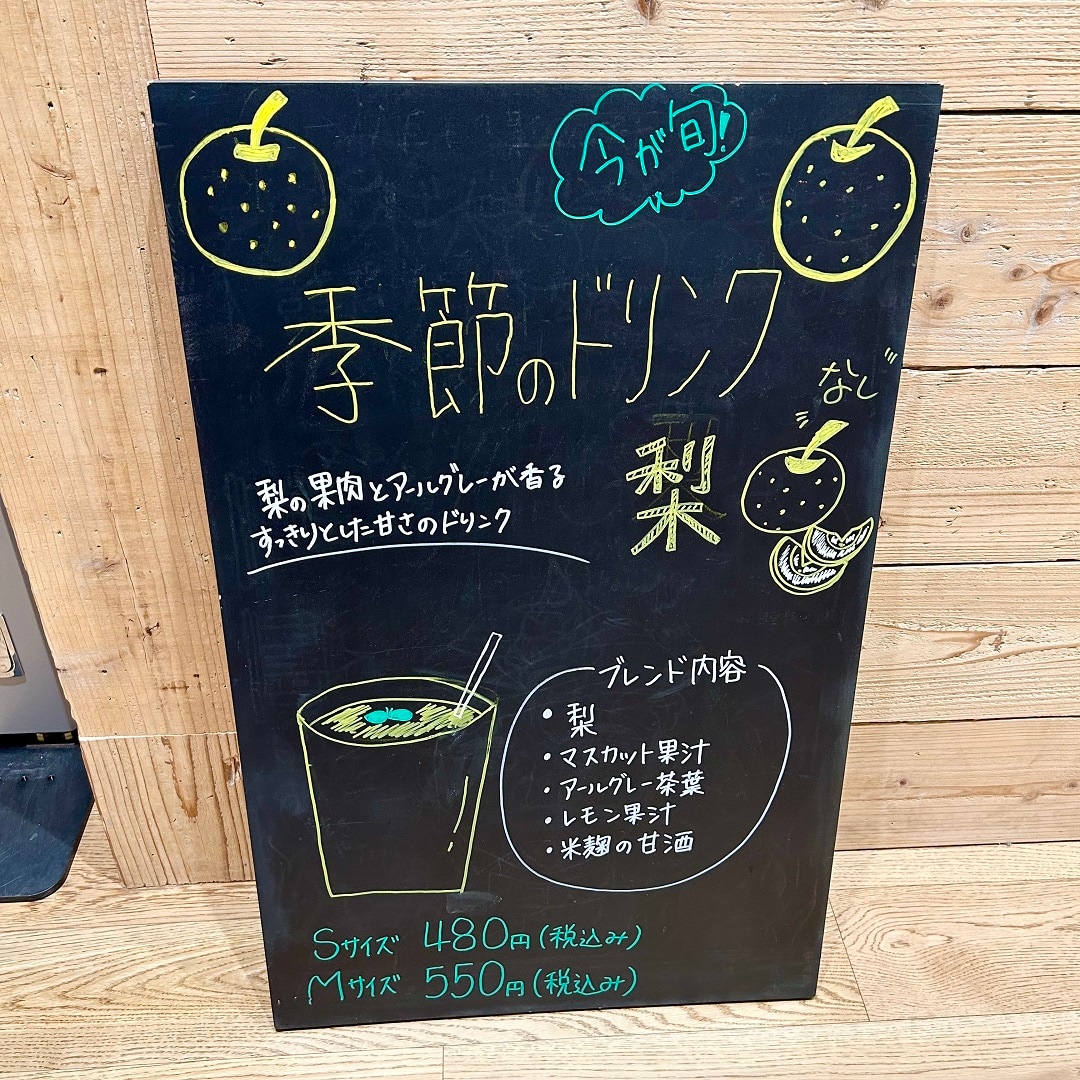 今が旬!
季節のドリンク
なし
梨
梨の果肉とアールグレーが香る
すっきりとした甘さのドリンク
ブレンド内容
• 梨
• マスカット果汁
• アールグレー茶葉
• レモン果汁
• 米麹の甘酒
Sサイズ 480円(税込み)
Mサイズ 550円(税込み)